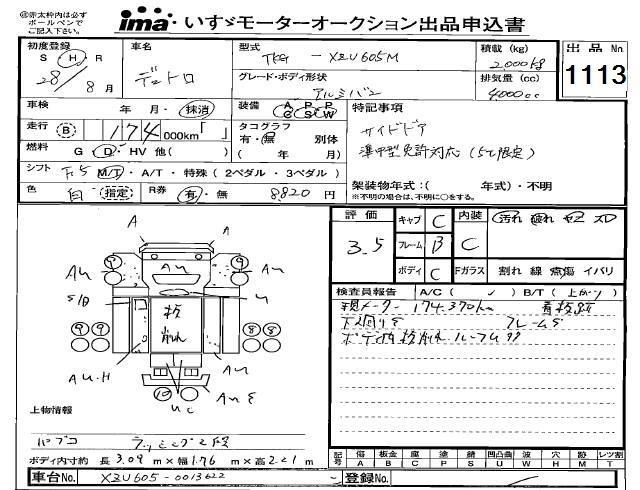 ㊟赤太枠内は必ず
ボールペンで
ご記入下さい。
ima いすゞモーターオークション出品申込書
初度登録 車名 型式 TKG - XZU605M 積載 (kg) 2000kg 出品 No. 1113
S H R
28 / 8月 デュトロ グレード・ボディ形状 アルミバン 排気量 (cc) 4000cc
車検 年 月・抹消 装備 A P P C S W 特記事項
走行 B 174 000km「 」 タコグラフ サイドドア
有・無 別体
燃料 G D HV 他( ) ( 年 月) 準中型免許対応 (5t限定)
シフト F5 M/T・A/T・特殊 (2ペダル・3ペダル)
色 白 指定 R券 有・無 8820円 架装物年式：( 年式)・不明
※不明の場合は、不明に○をする。
評価 キャブ C 内装 汚れ 破れ ヤニ スレ
3.5 フレーム B C
ボディ C Fガラス 割れ 線 飛傷 イバリ
検査員報告 A/C ( ✓ ) B/T (上がり)
現メーター 174,370km
ボデ内
板 削れ
上物情報
パブコ ラッシング2段
ボディ内寸約 長 3.09 m×幅 1.76 m×高 2.21 m
記号 傷 板金 腐 塗 錆 凹凸曲 波 穴 跡 レツ割
A B C P S U W H M T
車台No. XZU605-0013622 登録No. /